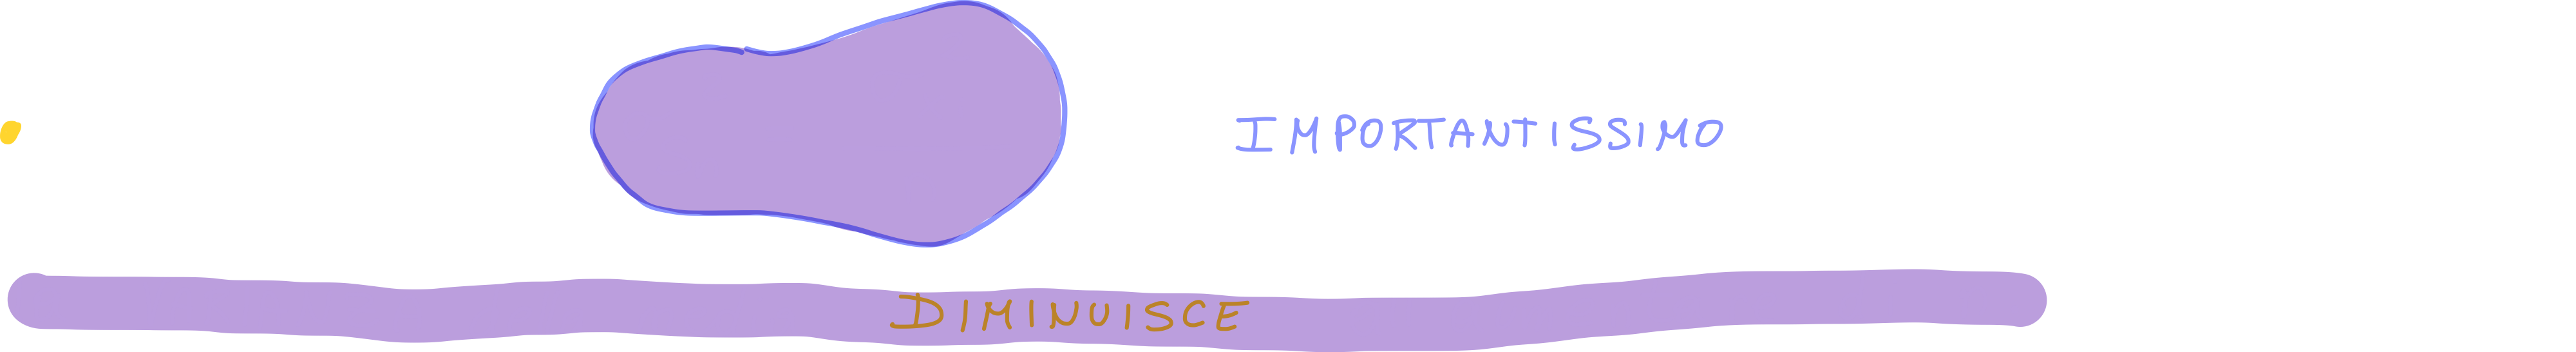 IMPORTANTISSIMO
DIMINUISCE